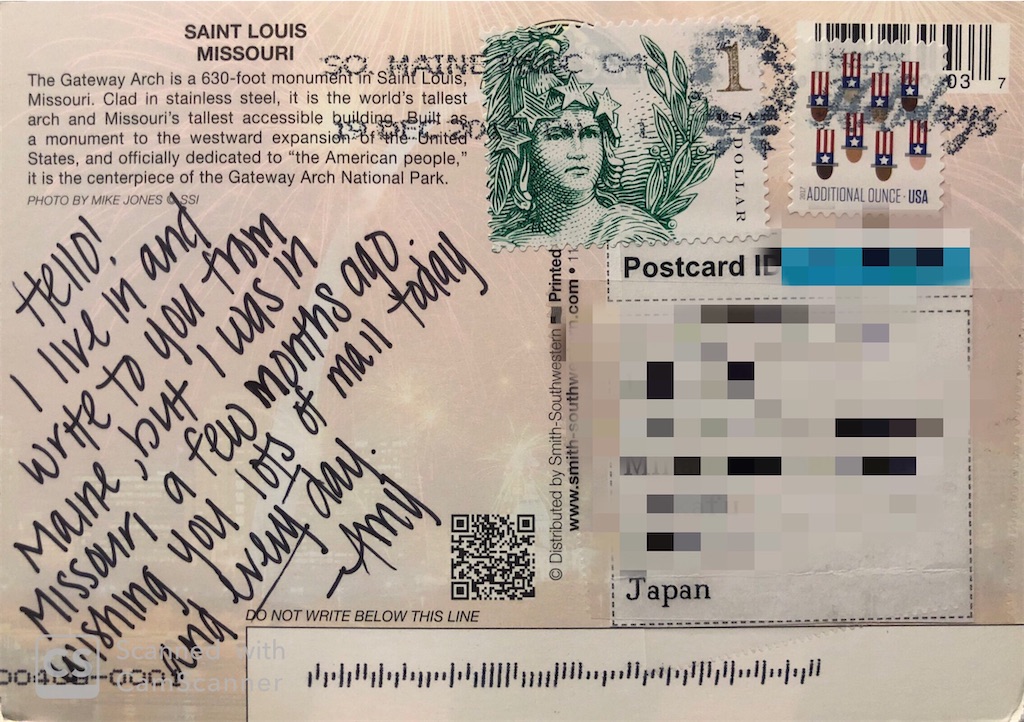 SAINT LOUIS
MISSOURI
The Gateway Arch is a 630-foot monument in Saint Louis,
Missouri. Clad in stainless steel, it is the world's tallest
arch and Missouri's tallest accessible building. Built as
a monument to the westward expansion of the United
States, and officially dedicated to "the American people,"
it is the centerpiece of the Gateway Arch National Park.
PHOTO BY MIKE JONES © SSI
Hello!
I live in and
write to you from
Maine, but I was in
Missouri a few months ago.
Wishing you lots of mail today
and every day.
~Amy
SO. MAINE
1
USA
DOLLAR
2017
ADDITIONAL OUNCE • USA
03 7
Postcard ID
Japan
© Distributed by Smith-Southwestern
Printed
www.smith-southw n.com • 1
DO NOT WRITE BELOW THIS LINE
CS Scanned with
CamScanner